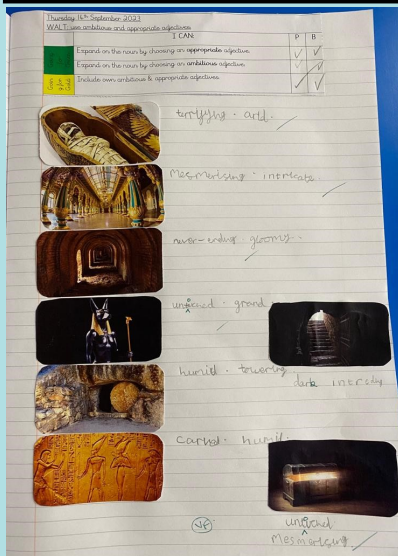 Thursday 16th September 2021
WALT: use ambitious and appropriate adjectives
I CAN: P B
Expand on the noun by choosing an appropriate adjective.
Expand on the noun by choosing an ambitious adjective.
Include own ambitious & appropriate adjectives.
terrifying · arid.
Mesmerising · intricate.
never-ending gloomy.
grand
humid · towering
dark
carved · humid.
Mesmerising